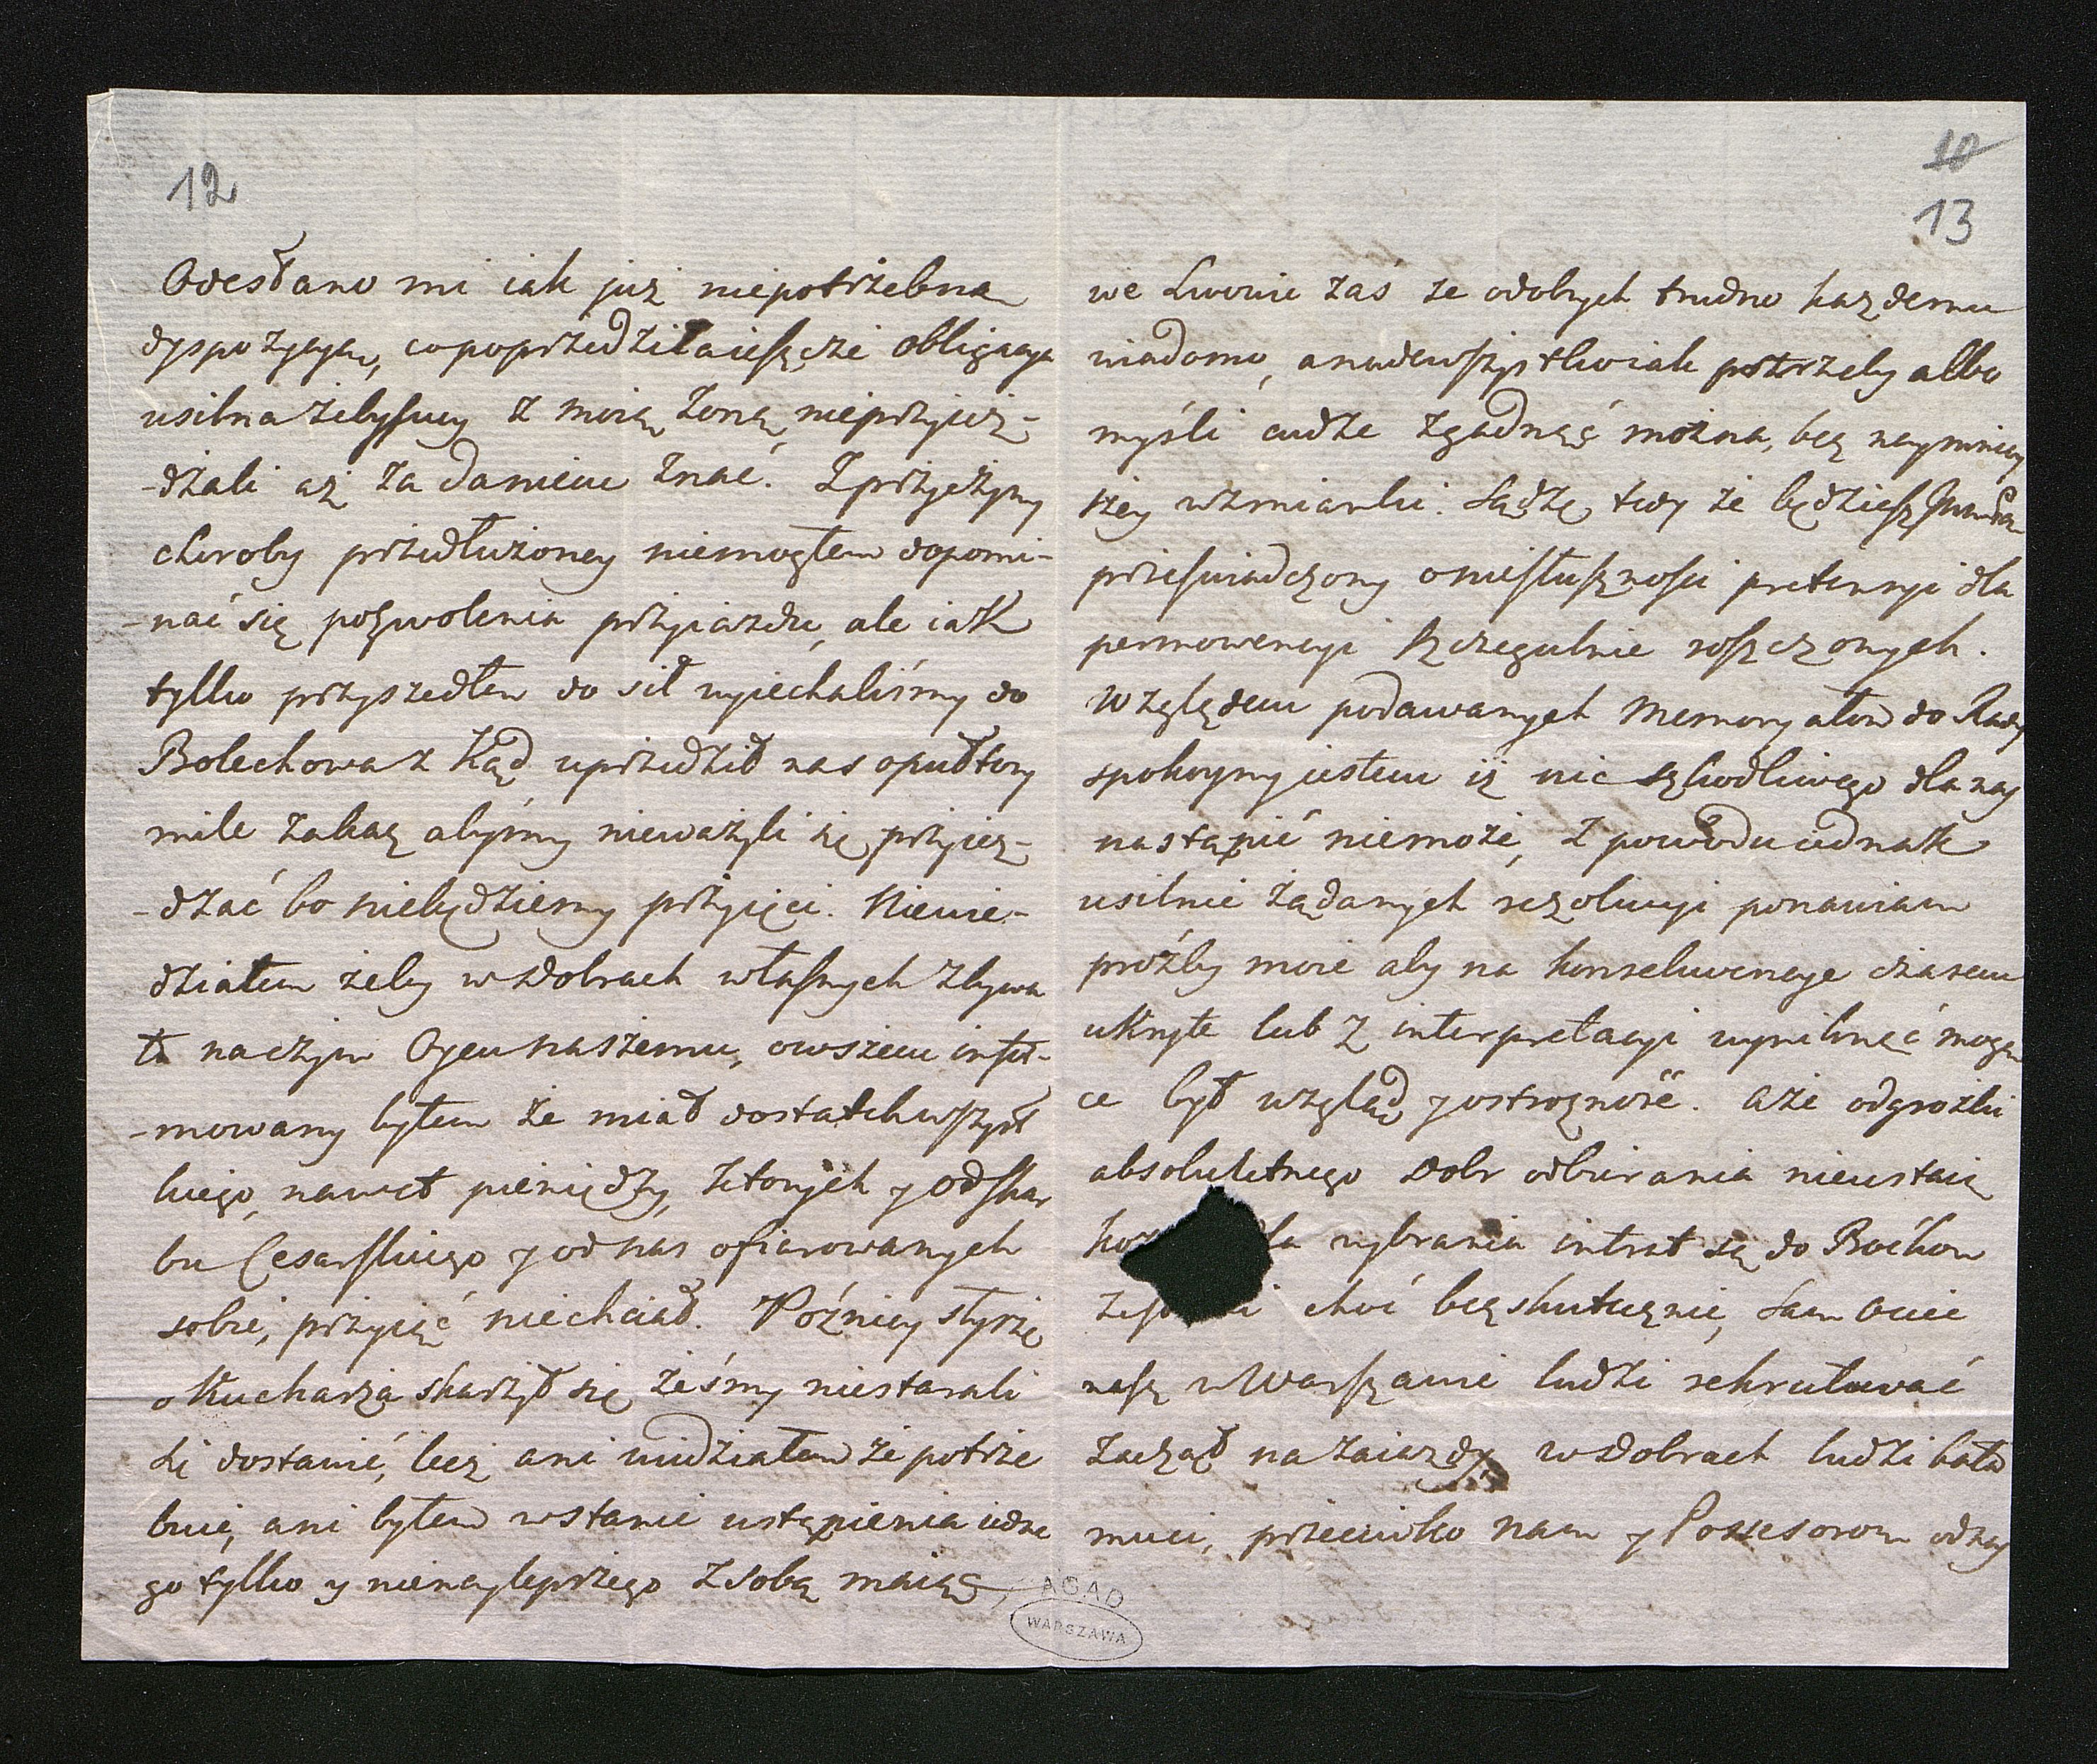 12
Odesłano mi iak juz niepotrzebna
dyspozycyą, co poprzedziła ieszcze obligacya
usilna żebysmy z moią Żoną nieprzyiez-
-dżali aż za daniem znać. Z przyczyny
choroby przedłużoney niemogłem dopomi-
-nać się pozwolenia przyiazdu, ale iak
tylko przyszedłem do sił wyiechaliśmy do
Bolechowa z kąd uprzedził nas o pułtory
mile zakaz abyśmy nieważyli się przyiez-
-dzać bo niebędziemy przyięci. Niewie-
działem żeby w Dobrach własnych zbywa
ło na czym Oycu naszemu, owszem infor-
-mowany byłem że miał dostatek wszyst
kiego, nawet pieniędzy, ktorych y od skar
bu Cesarskiego y od nas ofiarowanych
sobie, przyiąć niechciał. Pożniey słyszę
o Kucharza skarżył się żeśmy niestarali
się dostawić, lecz ani wiedziałem że potrze
buie, ani byłem w stanie ustąpienia iedne
go tylko y nienaylepszego z sobą maiąc,
10
13
we Lwowie zaś że o dobrych trudno każdemu
wiadomo, a nadewszystko iak potrzeby albo
myśli cudze zgadnąć można, bez naymniey
szey wzmianki. Sądzę tedy że będziesz
przeświadczony o niesłuszności pretensyi dla
permowencyi szczegulnie roszczonych.
Względem podawanych Memoryałow do Rady
spokoyny iestem iż nic szkodliwego dla nas
nastąpić niemoże, z powodu iednak
usilnie żądanych rezolucyi ponawiam
proźby moie aby na konsekwencye czasem
ukryte lub z interpretacyi wyniknąć mogą
ce był wzgląd y ostrożność. A że odgrożki
absolutetnego Dobr odbierania nieustaią
la wybrania intrat są do Bockow
choć bezskutecznie, sam Ociec
nasz w Warszawie ludzi rekrutować
zaczął na zaiazdy w Dobrach ludzi bała
muci, przeciwko nam y Possesorom od nas
AGAD
WARSZAWA